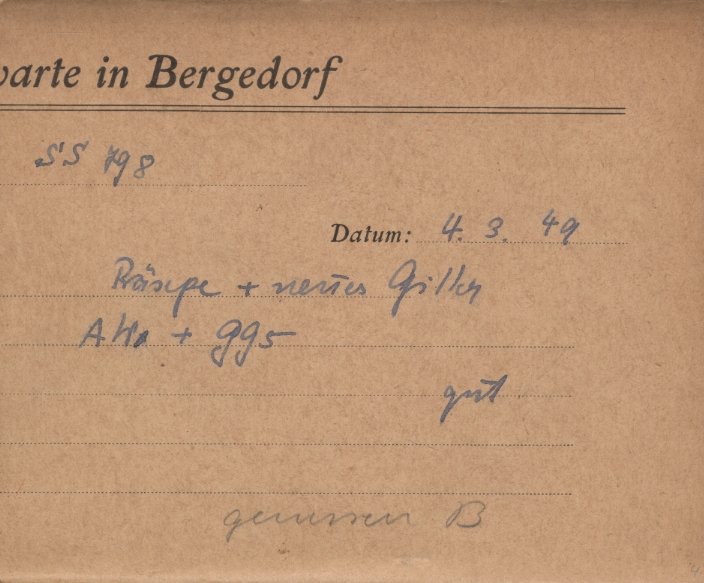 warte in Bergedorf
SS 798
Datum: 4. 3. 49
+ neues Gitter
+ GG5
gut
gemessen B